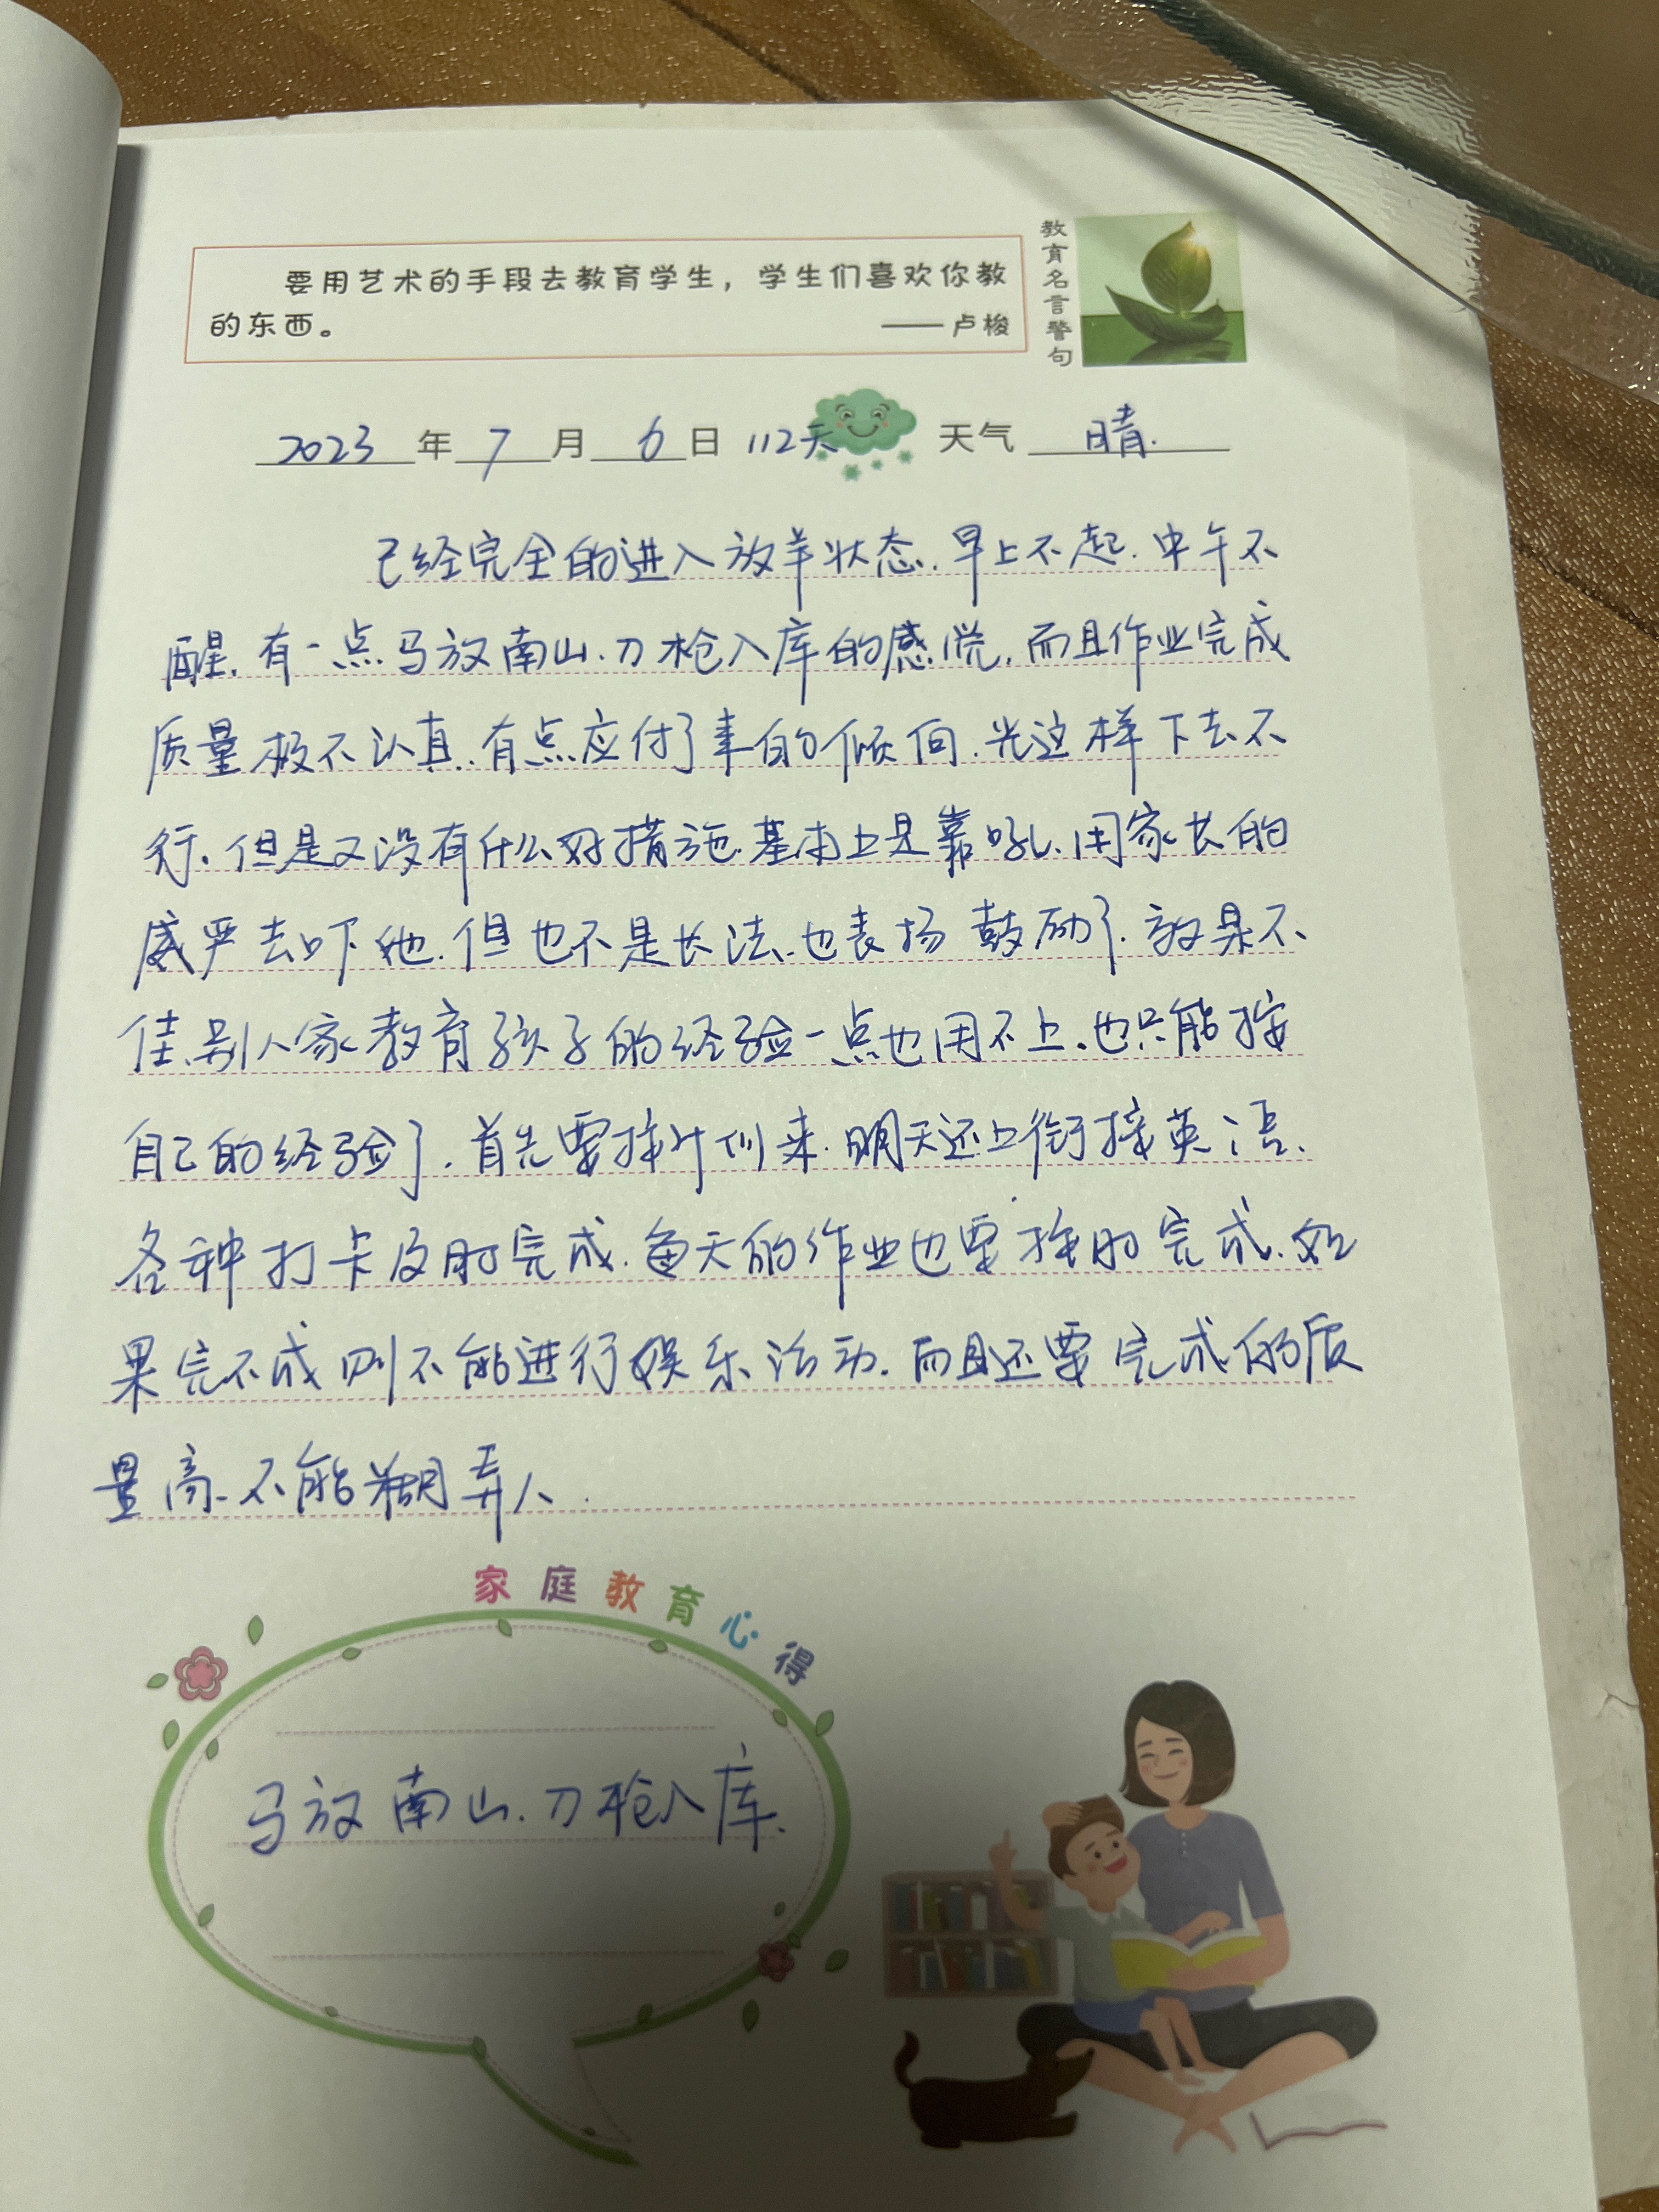 要用艺术的手段去教育学生，学生们喜欢你教
的东西。 ——卢梭
教育名言警句
2023年7月6日 112天 天气 晴.
已经完全的进入放羊状态.早上不起.中午不
醒.有一点马放南山.刀枪入库的感觉.而且作业完成
质量极不认真.有点应付了事的倾向.光这样下去不
行.但是又没有什么好措施.基本上是靠吼.用家长的
威严去吓他.但也不是长法.也表扬鼓励了.效果不
佳.别人家教育孩子的经验一点也用不上.也只能按
自己的经验了.首先要排计划来.明天还上衔接英语.
各种打卡及时完成.每天的作业也要按时完成.如
果完不成则不能进行娱乐活动.而且还要完成的质
量高.不能糊弄人.
家庭教育心得
马放南山.刀枪入库.